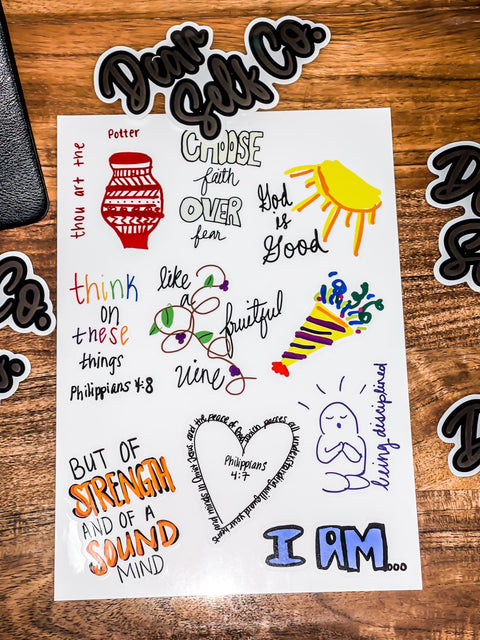 Dear
Self Co.
thou art the
Potter
CHOOSE
faith
OVER
fear
God
is
Good
think
on
these
things
Philippians 4:8
like
a
fruitful
vine
living disciplined
BUT OF
STRENGTH
AND OF A
SOUND
MIND
and the peace of God which passes all understanding will guard your hearts and minds in Christ Jesus
Philippians
4:7
I AM...
Co.